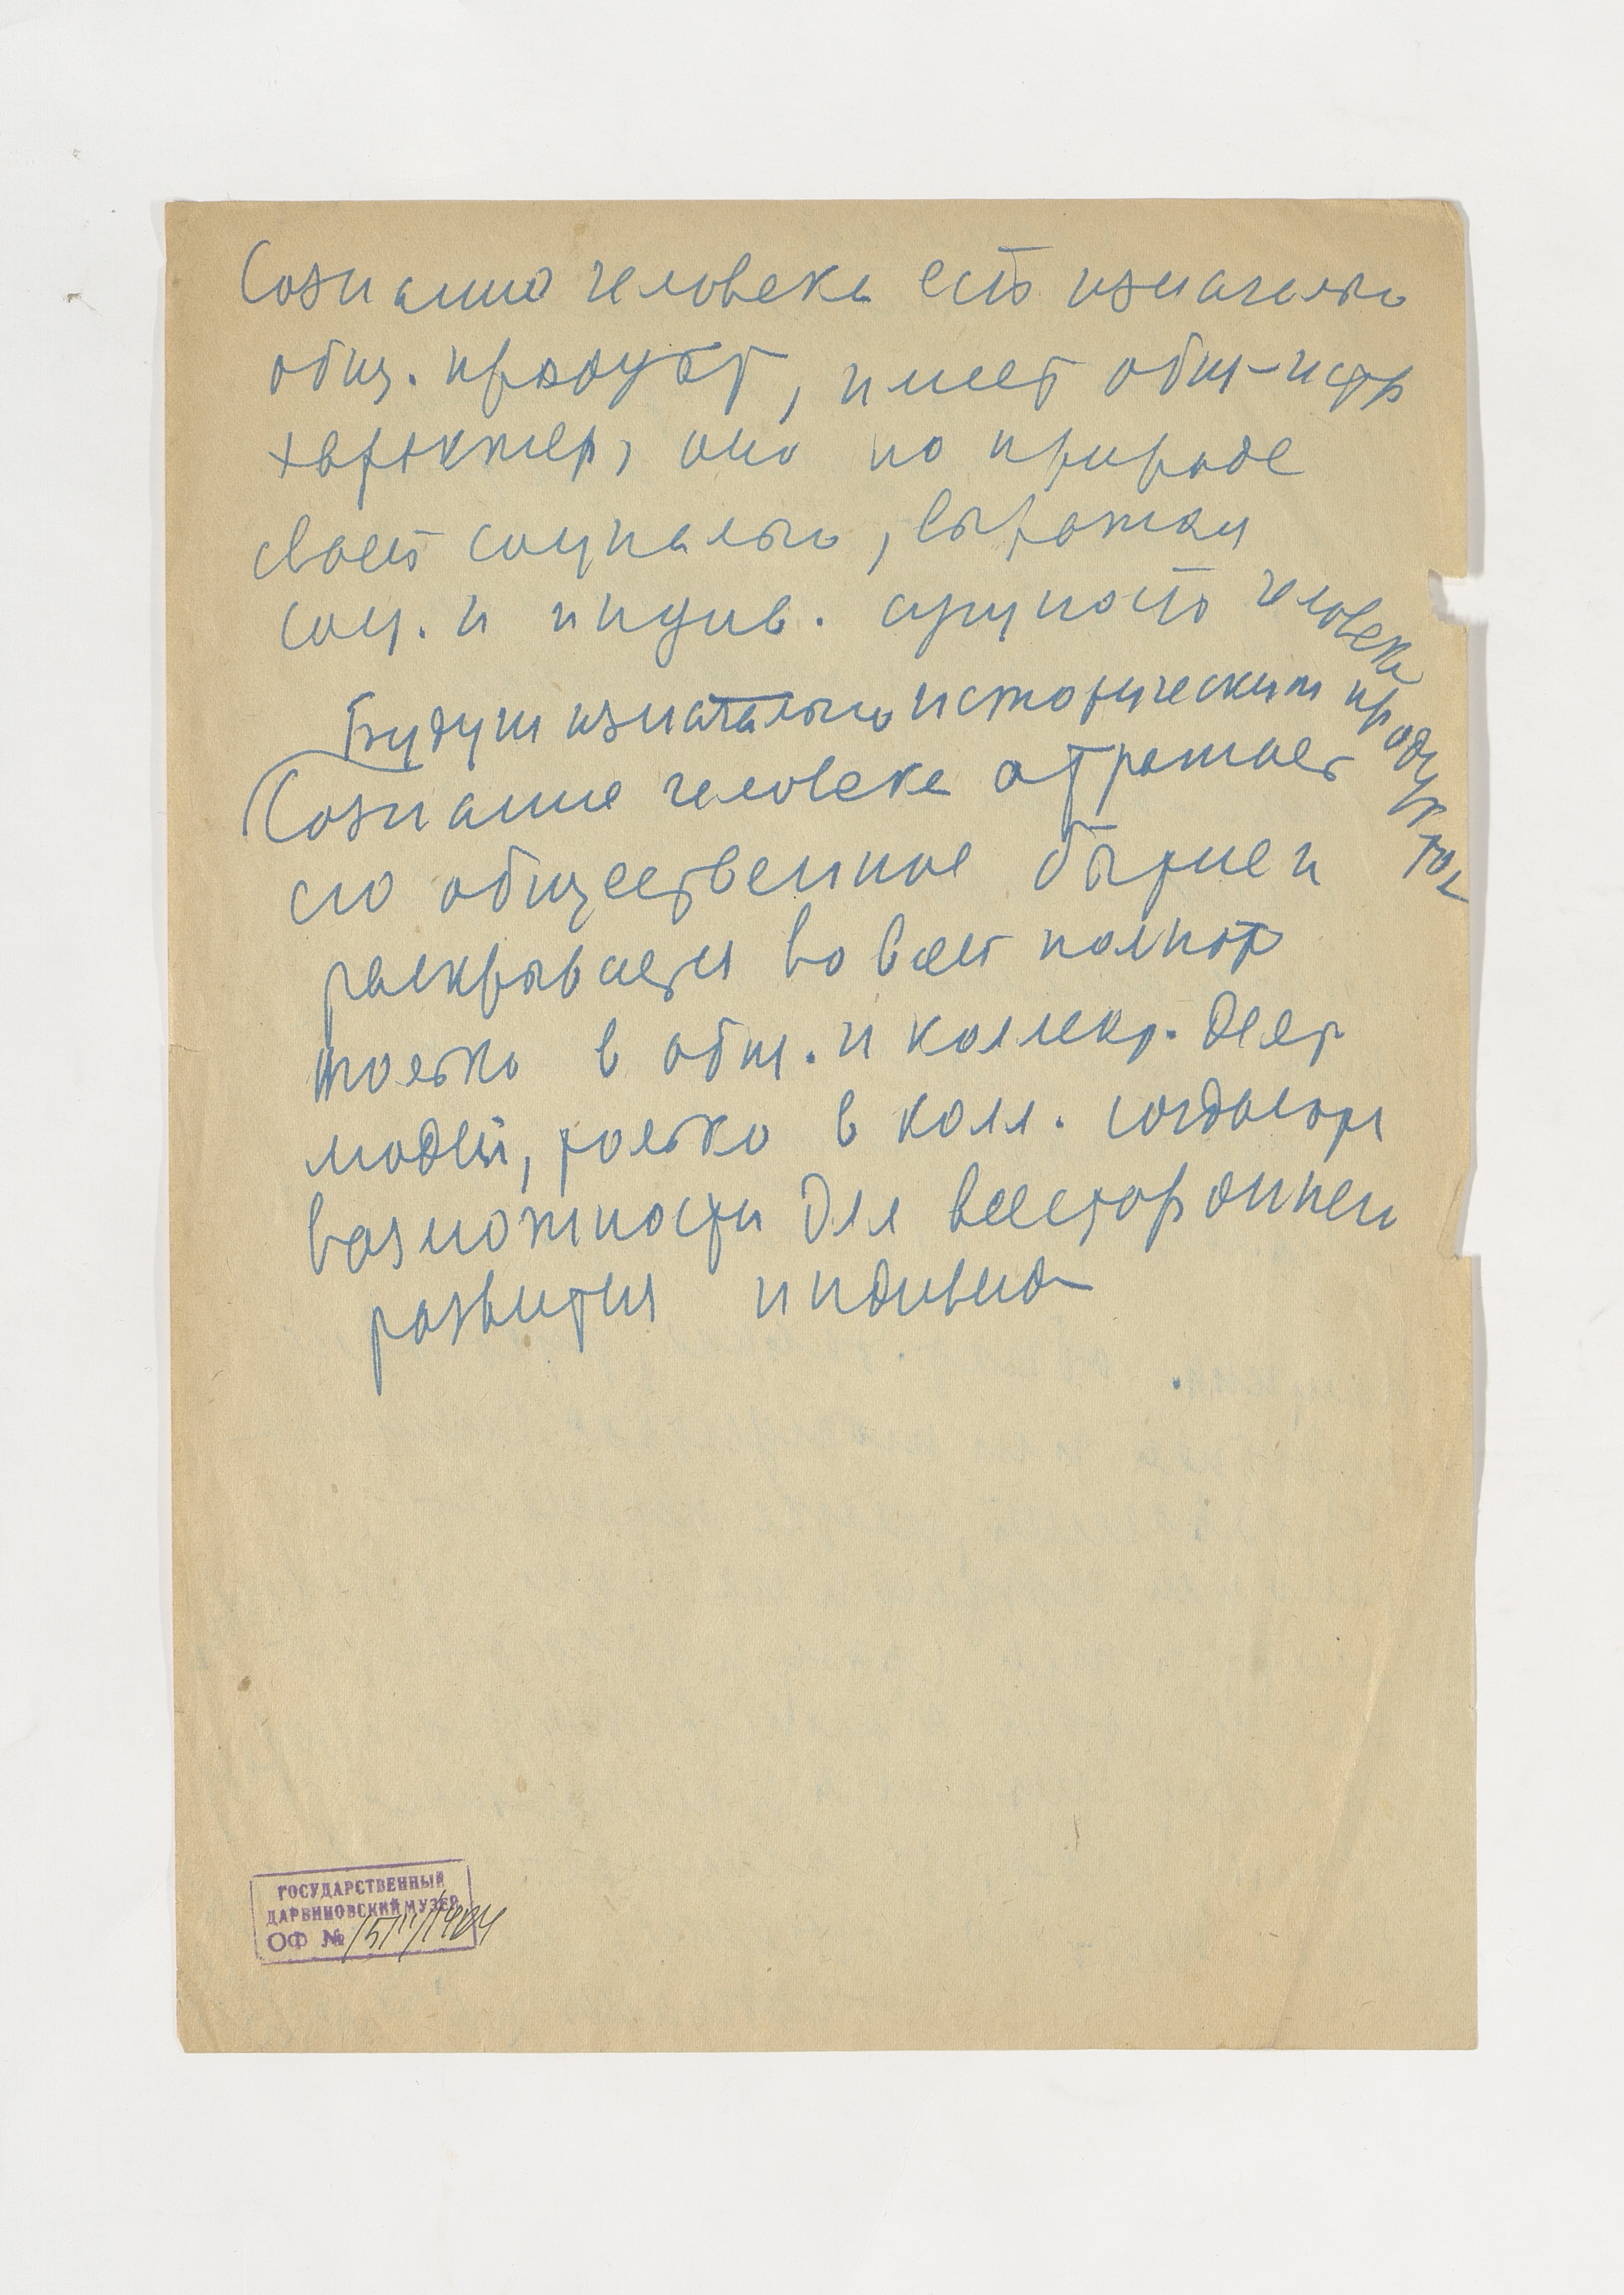 Сознание человека есть изначально
общ. продукт, имеет общ-истр
характер, оно по природе
своей социально, выражая
соц. и индив. сущность человека
Будучи изначально историческим продуктом
Сознание человека отражает
его общественное бытие и
раскрывается во всей полноте
только в общ. и коллект. деят
людей, только в колл. создаются
возможности для всестороннего
развития индивид
ГОСУДАРСТВЕННЫЙ
ДАРВИНОВСКИЙ МУЗЕЙ
ОФ №